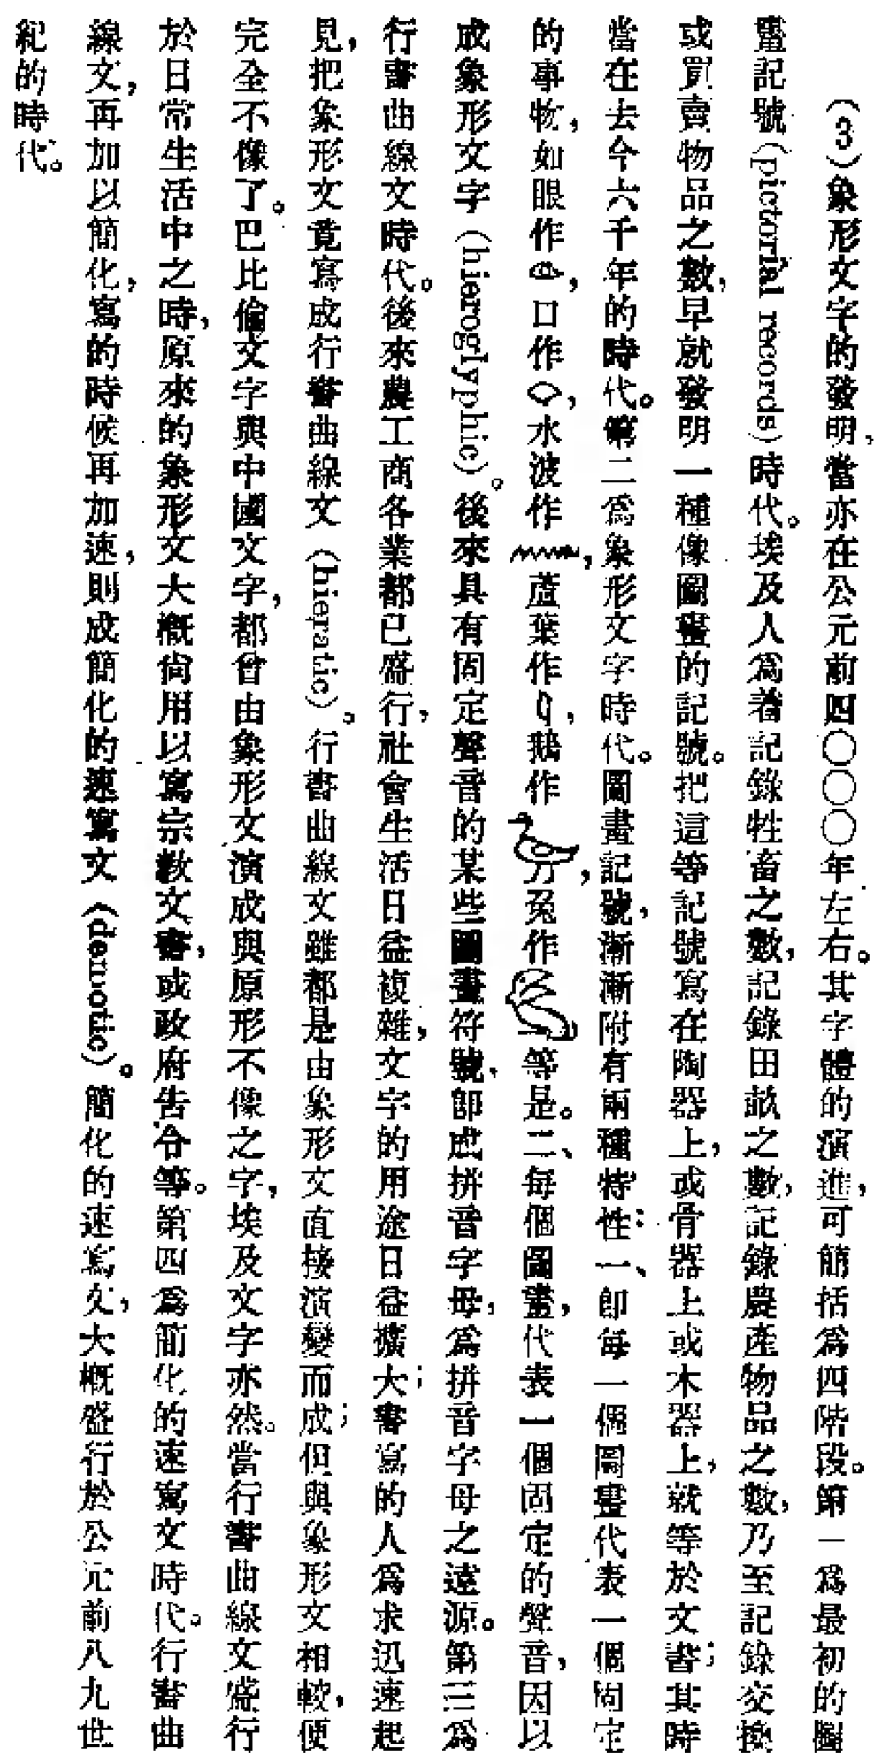 (3)象形文字的發明,當亦在公元前四〇〇〇年左右。其字體的演進,可簡括爲四階段。第一爲最初的圖
畫記號(pictorial records)時代。埃及人爲着記錄牲畜之數,記錄田畝之數,記錄農產物品之數,乃至記錄交換
或買賣物品之數,早就發明一種像圖畫的記號。把這等記號寫在陶器上,或骨器上或木器上,就等於文書;其時
當在去今六千年的時代。第二爲象形文字時代。圖畫記號,漸漸附有兩種特性:一、卽每一個圖畫代表一個固定
的事物,如眼作,口作,水波作,蘆葉作,鵝作,兔作等是。二、每個圖畫,代表一個固定的聲音,因以
成象形文字(hieroglyphic)。後來具有固定聲音的某些圖畫符號,卽成拼音字母,爲拼音字母之遠源。第三爲
行書曲線文時代。後來農工商各業都已盛行,社會生活日益複雜,文字的用途日益擴大;書寫的人爲求迅速起
見,把象形文竟寫成行書曲線文(hieratic)。行書曲線文雖都是由象形文直接演變而成;但與象形文相較,便
完全不像了。巴比倫文字與中國文字,都曾由象形文演成與原形不像之字,埃及文字亦然。當行書曲線文盛行
於日常生活中之時,原來的象形文大概尙用以寫宗教文書,或政府告令等。第四爲簡化的速寫文時代。行書曲
線文,再加以簡化,寫的時候再加速,則成簡化的速寫文(demotic)。簡化的速寫文,大概盛行於公元前八九世
紀的時代。